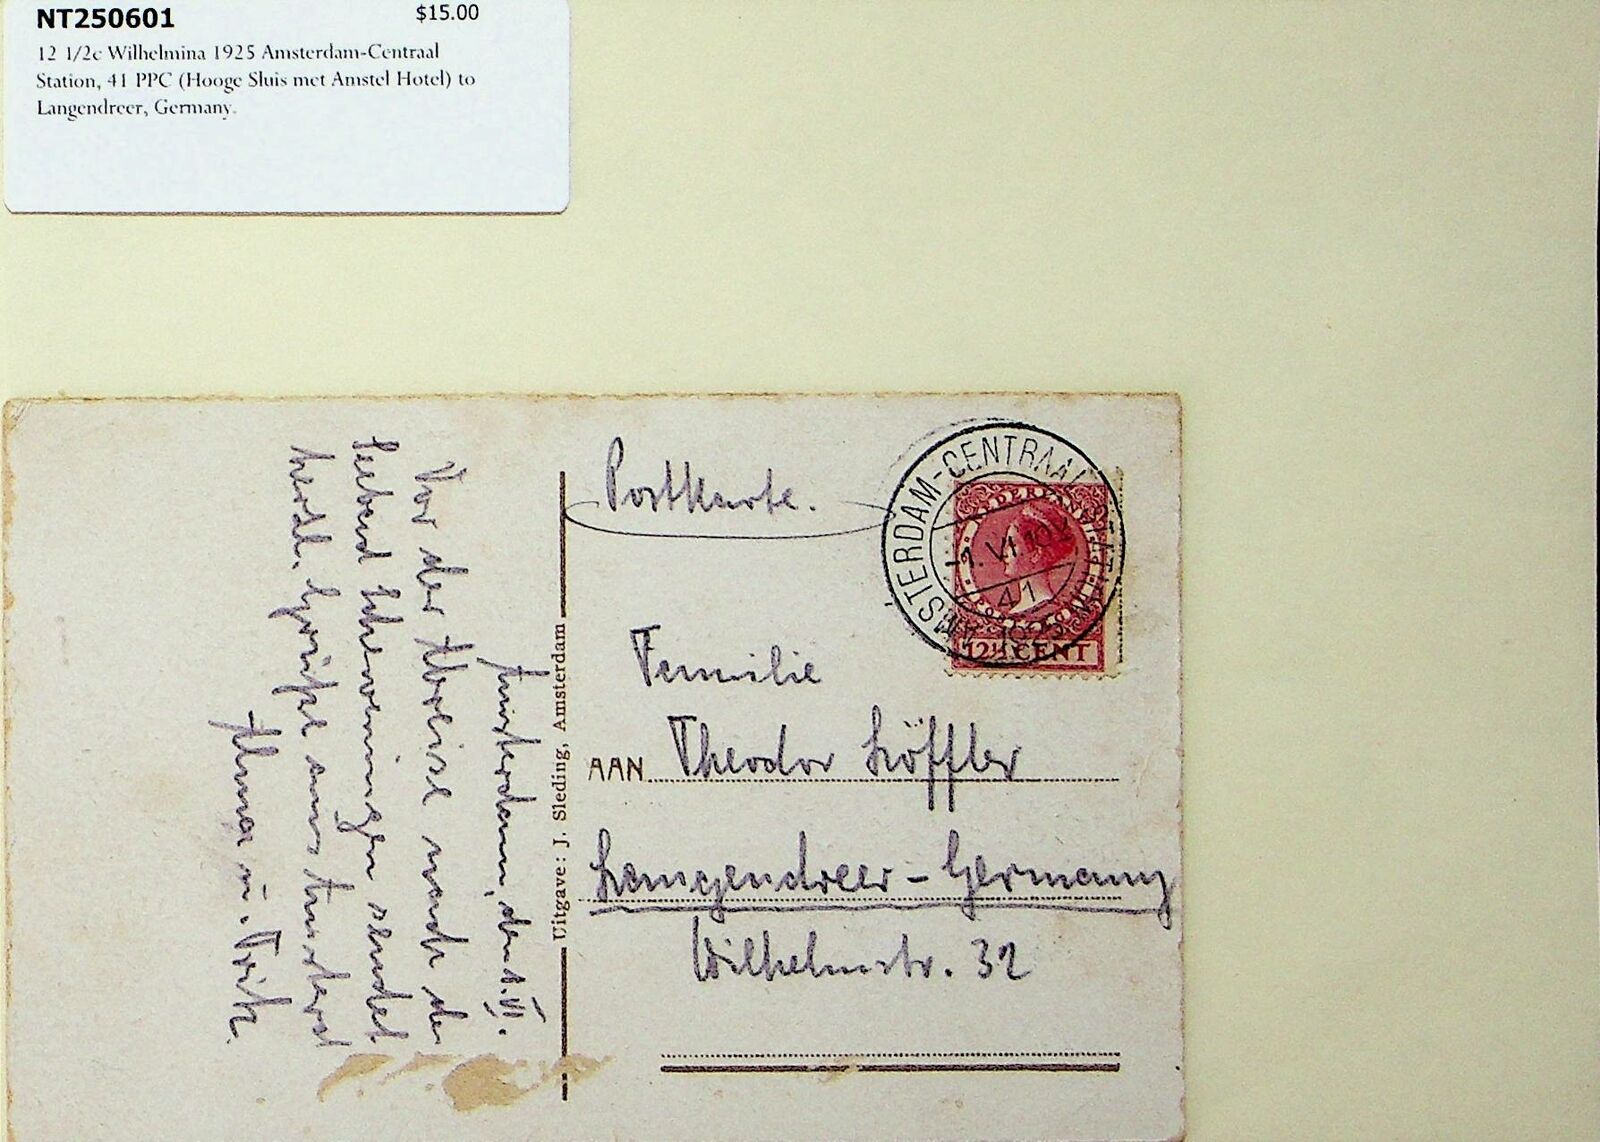 NT250601
$15.00
12 1/2c Wilhelmina 1925 Amsterdam-Centraal
Station, 41 PPC (Hooge Sluis met Amstel Hotel) to
Langendreer, Germany.
Postkarte.
AMSTERDAM-CENTRAAL STATION
-1.VI.10
41
1925
NEDERLAND
12½ CENT
Familie
AAN Theodor Löffler
Langendreer - Germany
Wilhelmstr. 32
Uitgave: J. Sleding, Amsterdam
Amsterdam, den 1.VI.
Vor der Abreise nach
sendet
herzl. Grüsse aus Amsterd
u. Fritz.